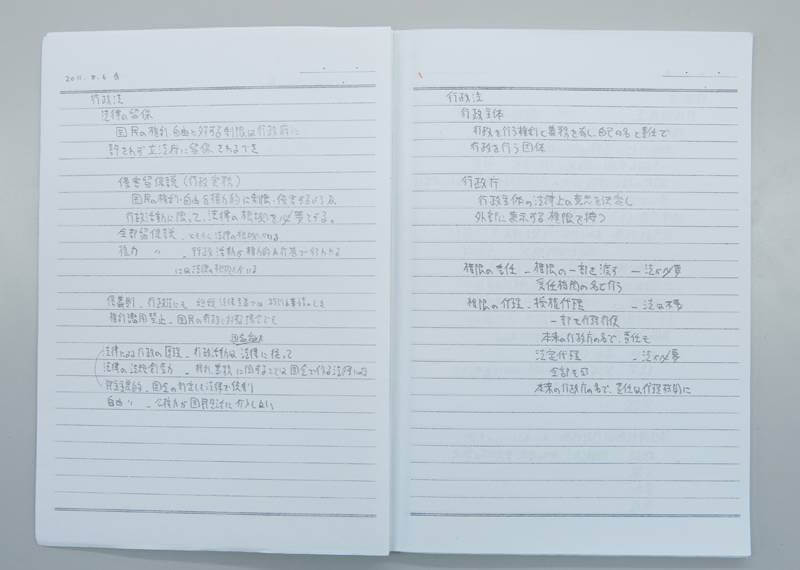 2011. 8. 6
行政法
法律の留保
国民の権利・自由に対する制限は行政府に
許されず立法府に留保される
侵害留保説(行政実務)
国民の権利・自由を権力的に制限・侵害する
行政活動に限って、法律の根拠を必要とする。
全部留保説
権力 〃 - 行政活動が権力的な行為で行われる
には法律の根拠がいる
信義則
権利濫用禁止 - 国民の
法律による行政の原理 - 行政活動は法律に従って
法律の法規創造力 - 権利義務に関することは国会で作る法律による
民主主義的 - 国会の制定した法律で
自由 〃 - 公権力が国民生活に介入しない
行政法
行政主体
行政を行う権利と義務を有し、自己の名と責任で
行政を行う団体
行政庁
行政主体の法律上の意思を決定し
外部に表示する権限を持つ
権限の委任 - 権限の一部を渡す - 法が必要
受任機関の名で行う
権限の代理 - 授権代理 - 法は不要
一部を
本来の行政庁の名で、責任も
法定代理 - 法が必要
全部を
本来の行政庁の名で、責任は代理機関に